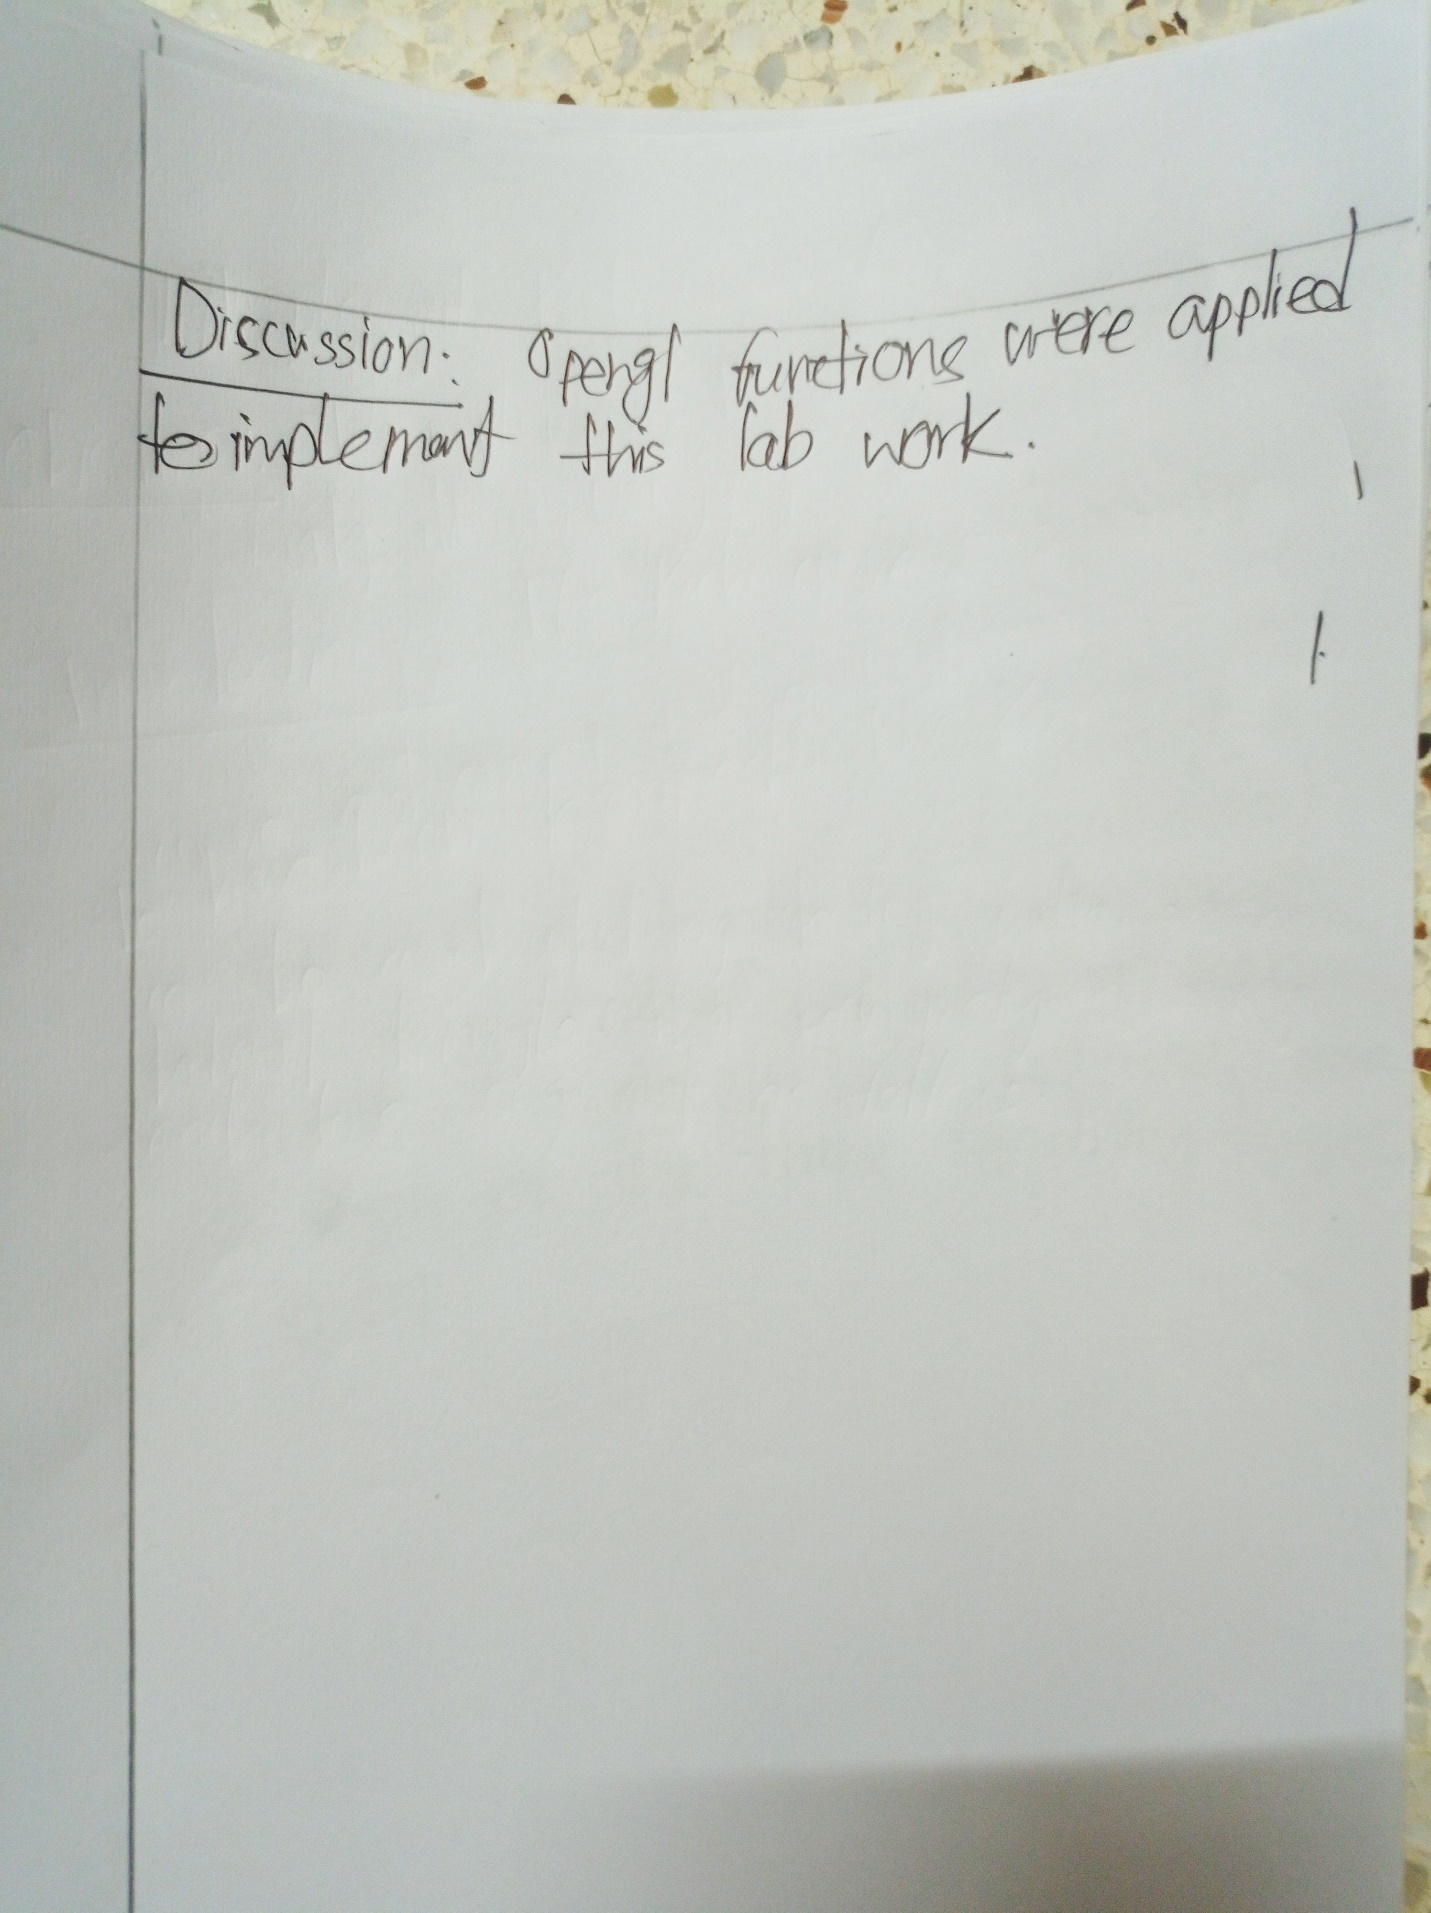 Discussion: Opengl functions were applied
to implement this lab work.